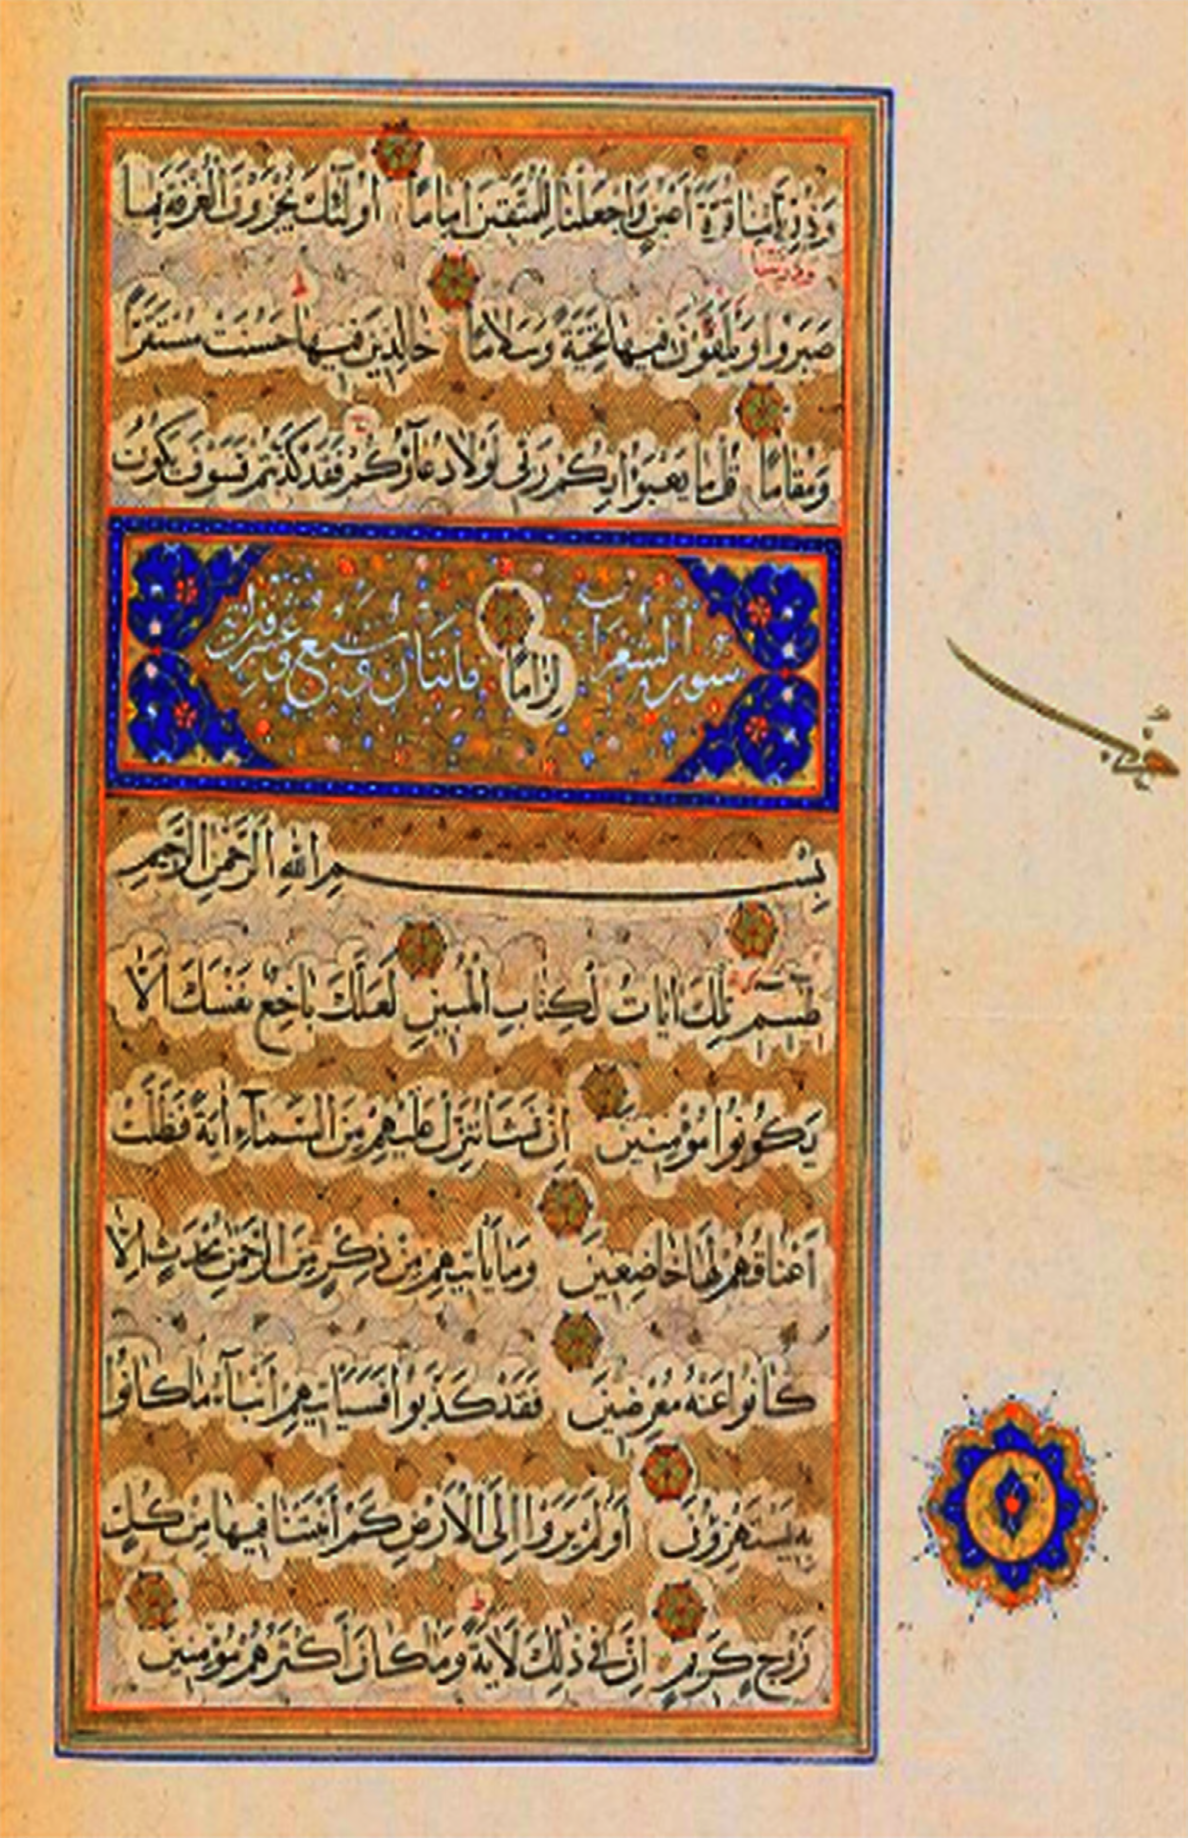 وَذُرِّيَّاتِنَا قُرَّةَ أَعْيُنٍ وَاجْعَلْنَا لِلْمُتَّقِينَ اِمَامًا اُولٰٓئِكَ يُجْزَوْنَ الْغُرْفَةَ بِمَا
وذريتنا
صَبَرُوا وَيُلَقَّوْنَ فِيهَا تَحِيَّةً وَسَلَامًا خَالِدِينَ فِيهَا حَسُنَتْ مُسْتَقَرًّا
ط
وَمُقَامًا قُلْ مَا يَعْبَؤُا بِكُمْ رَبِّى لَوْلَا دُعَآؤُكُمْ فَقَدْ كَذَّبْتُمْ فَسَوْفَ يَكُونُ
سورة الشعراء لِزَامًا مائتان وسبع وعشرون آية
بِسْمِ اللّٰهِ الرَّحْمٰنِ الرَّحِيمِ
طٰسٓمٓ تِلْكَ اٰيَاتُ الْكِتَابِ الْمُبِينِ لَعَلَّكَ بَاخِعٌ نَفْسَكَ اَلَّا
يَكُونُوا مُؤْمِنِينَ اِنْ نَشَأْ نُنَزِّلْ عَلَيْهِمْ مِنَ السَّمَآءِ اٰيَةً فَظَلَّتْ
اَعْنَاقُهُمْ لَهَا خَاضِعِينَ وَمَا يَأْتِيهِمْ مِنْ ذِكْرٍ مِنَ الرَّحْمٰنِ مُحْدَثٍ اِلَّا
كَانُوا عَنْهُ مُعْرِضِينَ فَقَدْ كَذَّبُوا فَسَيَأْتِيهِمْ اَنْبَآءُ مَا كَانُوا
بِهِ يَسْتَهْزِؤُنَ اَوَلَمْ يَرَوْا اِلَى الْاَرْضِ كَمْ اَنْبَتْنَا فِيهَا مِنْ كُلِّ
زَوْجٍ كَرِيمٍ اِنَّ فِى ذٰلِكَ لَاٰيَةً وَمَا كَانَ اَكْثَرُهُمْ مُؤْمِنِينَ
ط